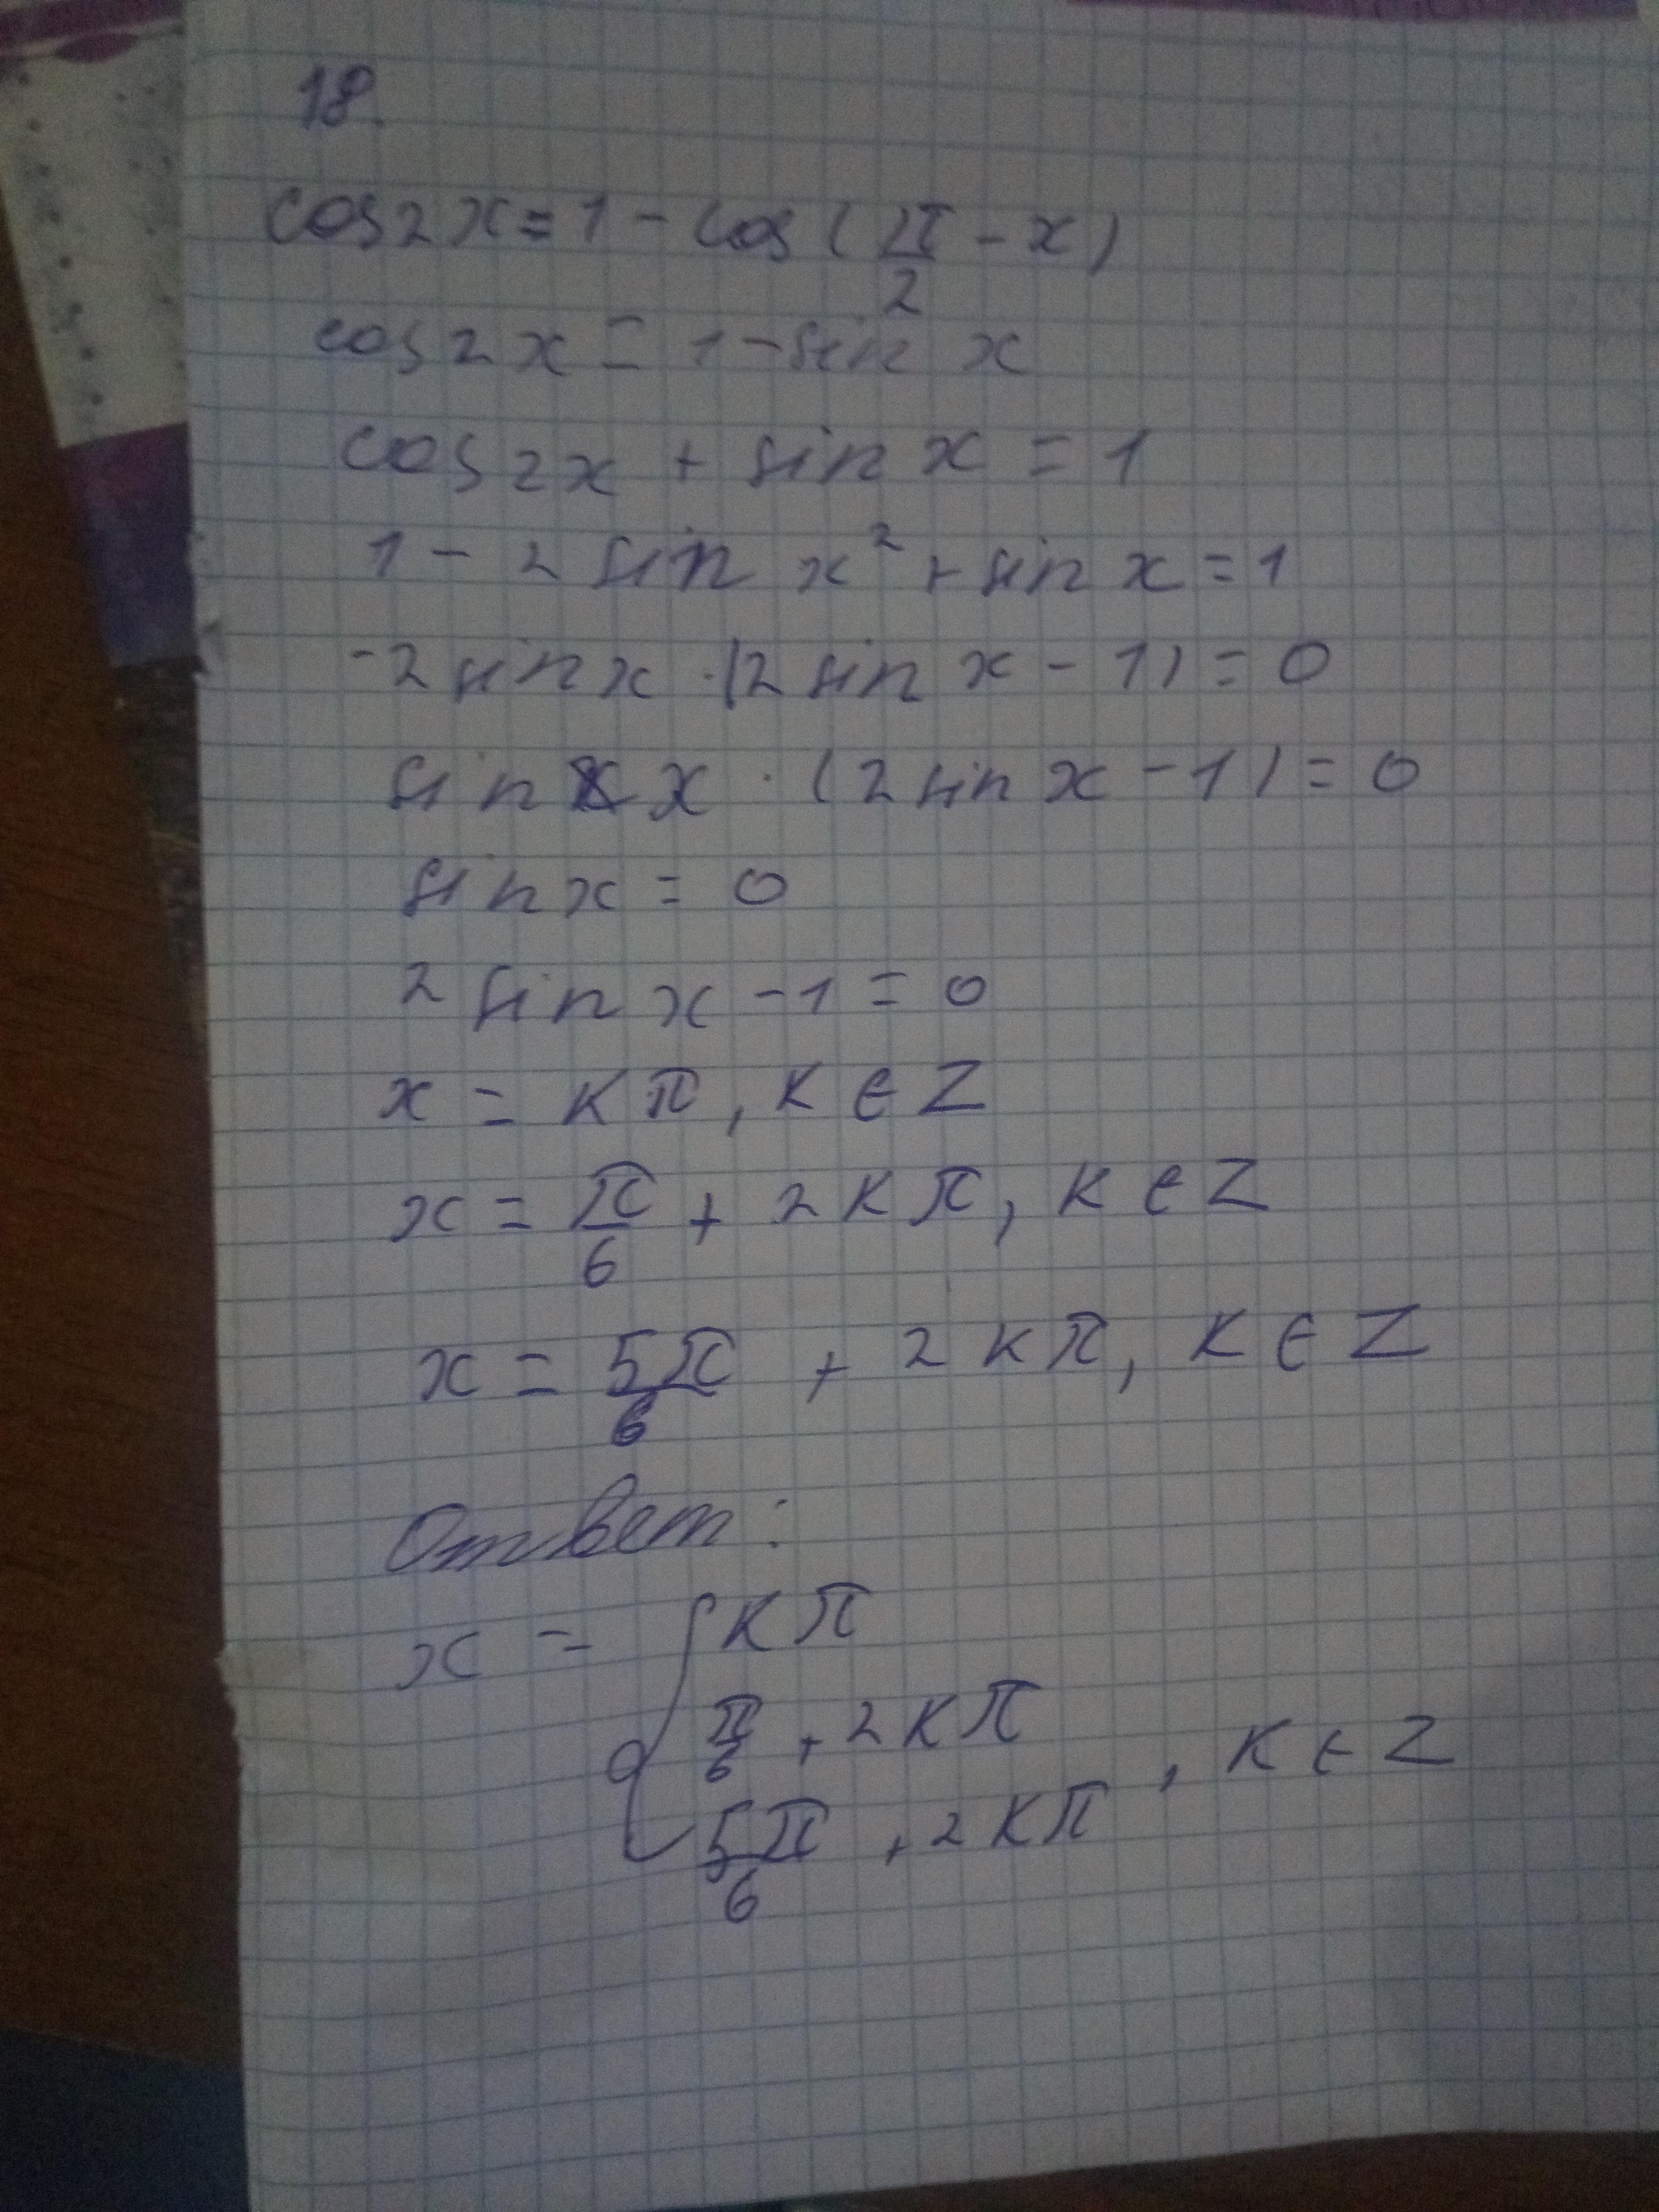 18.
cos2x=1-cos(π/2-x)
cos2x=1-sin x
cos2x+sin x=1
1-2 sin x²+sin x=1
-2sinx·(2sin x-1)=0
sin x·(2sin x-1)=0
sinx=0
2sin x-1=0
x=кπ, к∈Z
x=π/6+2кπ, к∈Z
x=5π/6+2кπ, к∈Z
Ответ:
x={кπ
π/6+2кπ
5π/6+2кπ, к∈Z